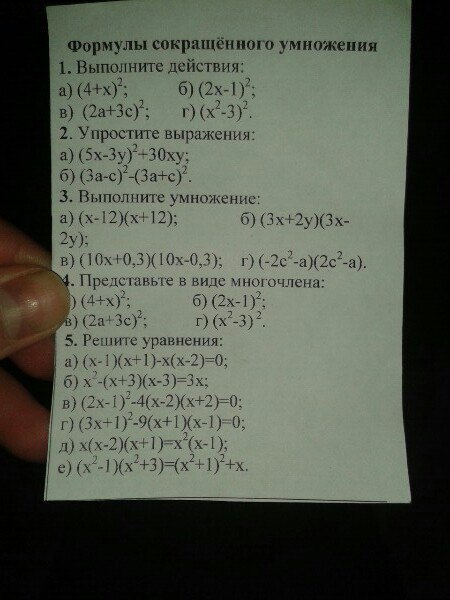 Формулы сокращённого умножения
1. Выполните действия:
а) (4+x)²; б) (2x-1)²;
в) (2a+3c)²; г) (x²-3)².
2. Упростите выражения:
а) (5x-3y)²+30xy;
б) (3a-c)²-(3a+c)².
3. Выполните умножение:
а) (x-12)(x+12); б) (3x+2y)(3x-
2y);
в) (10x+0,3)(10x-0,3); г) (-2c²-a)(2c²-a).
4. Представьте в виде многочлена:
) (4+x)²; б) (2x-1)²;
в) (2a+3c)²; г) (x²-3)².
5. Решите уравнения:
а) (x-1)(x+1)-x(x-2)=0;
б) x²-(x+3)(x-3)=3x;
в) (2x-1)²-4(x-2)(x+2)=0;
г) (3x+1)²-9(x+1)(x-1)=0;
д) x(x-2)(x+1)=x²(x-1);
е) (x²-1)(x²+3)=(x²+1)²+x.